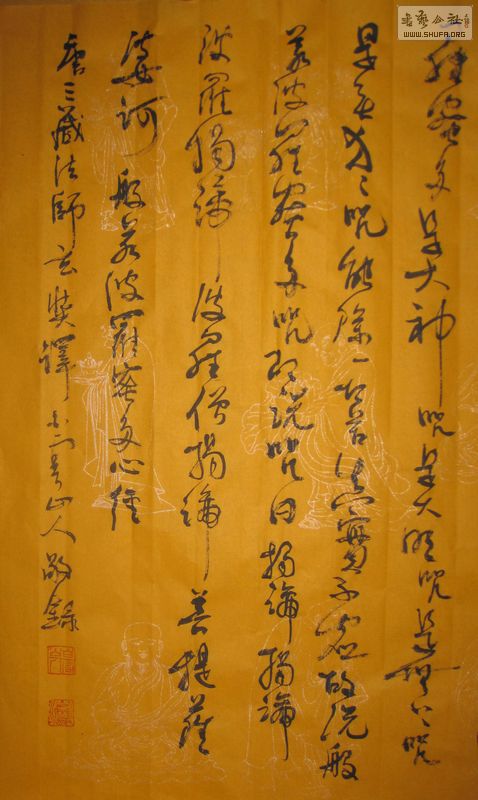 書藝公社
WWW.SHUFA.ORG
羅蜜多是大神咒是大明咒是無上咒
是无等々咒能除一切苦真實不虛故說般
若波羅蜜多咒即說咒曰揭諦揭諦
波羅揭諦 波羅僧揭諦 菩提薩
婆訶 般若波羅蜜多心經
唐三藏法師玄奘譯 山人敬錄